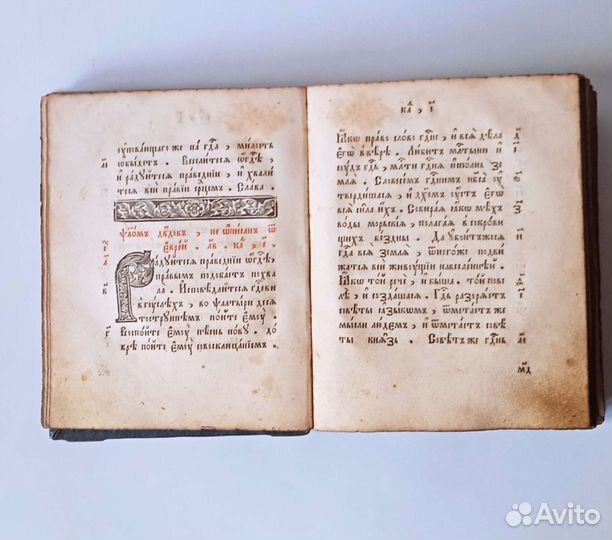 оуповающаго же на гд҇а, милость
ѡбыдетъ. Веселитеся ѡ гд҇ѣ,
и радуйтеся праведнии, и хвали
теся вси правїи ср҇цемъ. Слава.
ѱаломъ дв҃довъ, не ѡписанъ ѿ
еврей. лв. каѳ, г҃
Радуйтеся праведнїи ѡ гд҇ѣ,
правымъ подобаетъ похва
ла. Исповѣдайтеся гд҇еви
в гуслехъ, во ѱалтыри деся
тострүннемъ пойте емоу.
Воспойте емоу пѣснь новоу. до
брѣ пойте емоу со восклицанїемъ.
Каѳ, г҃
Ꙗкѡ право слово гд҇не, и вся дѣла
егѡ в вѣре. Любитъ мл҇тыню
и судъ гд҇ь, мл҇ти гд҇ня исполнь зе
мля. Словомъ гд҇нимъ нб҃са оу
твердишася, и дх҃омъ оустъ егѡ
вся сила ихъ. Собирая ꙗкѡ мѣхъ
воды морьскїя, полагая в сокрови
щихъ бездны. Да оубоитъжеся
гд҇а вся земля, ѿ негоже подви
жатся вси живоущїи на вселеннѣй.
Ꙗкѡ той рече, и быша. той пове
лѣ, и создашася. Гд҇ь разоряетъ
совѣты ꙗзыкомъ, ѿметаетъ же
мысли людемъ, и ѿметаетъ совѣ
ты кнѧзь. Совѣтъ же гд҇нь
мд
Avito